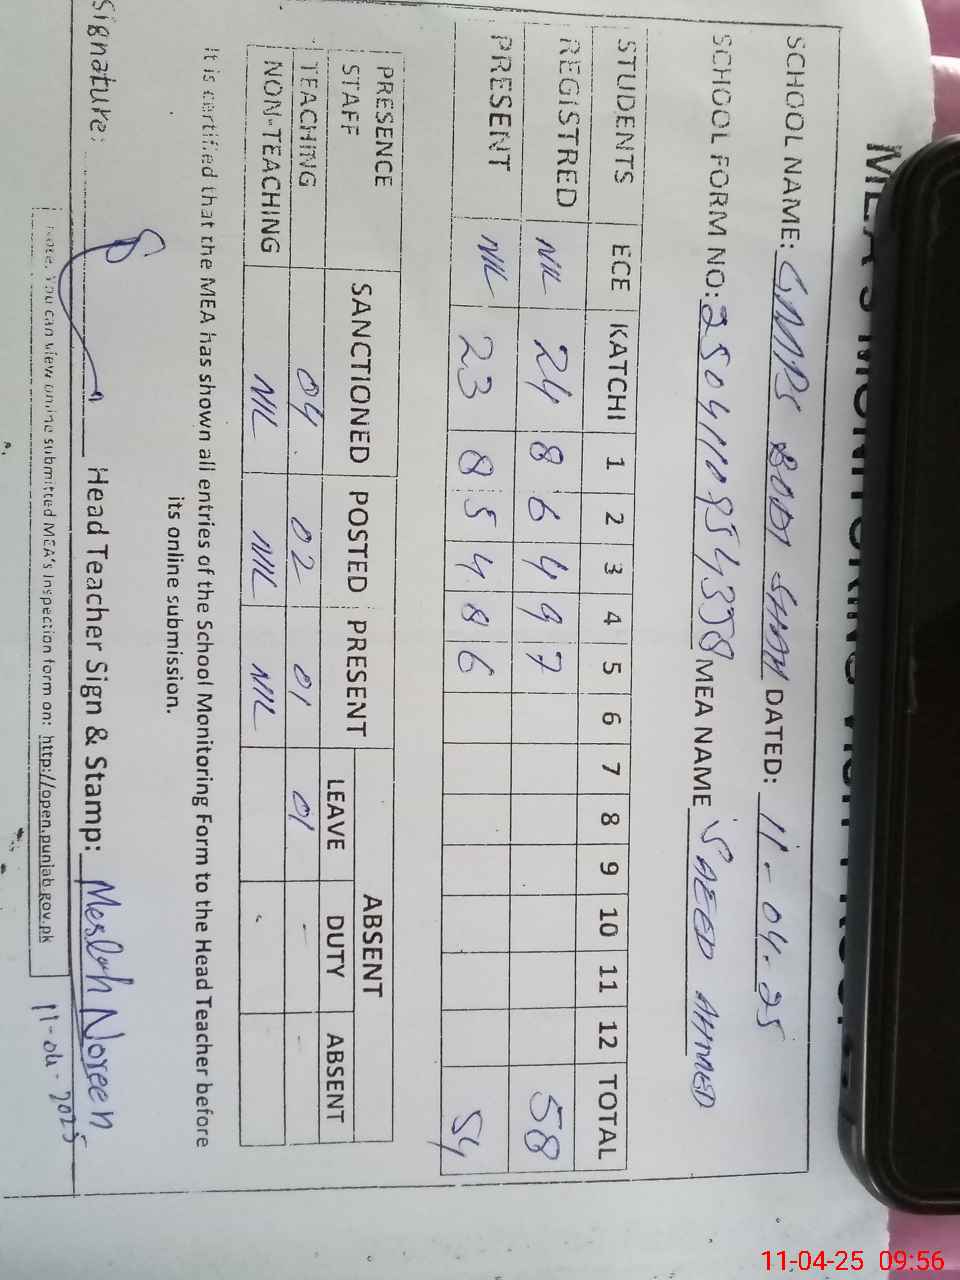 MEA'S MONITORING VISIT PROOF
SCHOOL NAME: GMMPS BODI SHAH DATED: 11-04-25
SCHOOL FORM NO: MEA NAME SAEED AHMED
STUDENTS ECE KATCHI 1 2 3 4 5 6 7 8 9 10 11 12 TOTAL
REGISTRED NIL 24 8 6 4 9 7 58
PRESENT NIL 23 8 5 4 8 6 54
PRESENCE STAFF SANCTIONED POSTED PRESENT ABSENT
LEAVE DUTY ABSENT
TEACHING 04 02 01 01 - -
NON-TEACHING NIL NIL NIL
It is certified that the MEA has shown all entries of the School Monitoring Form to the Head Teacher before
its online submission.
Signature: Head Teacher Sign & Stamp: Mesbah Noreen
11-04-2025
Note. You can view online submitted MEA's Inspection form on: http://open.punjab.gov.pk
11-04-25 09:56